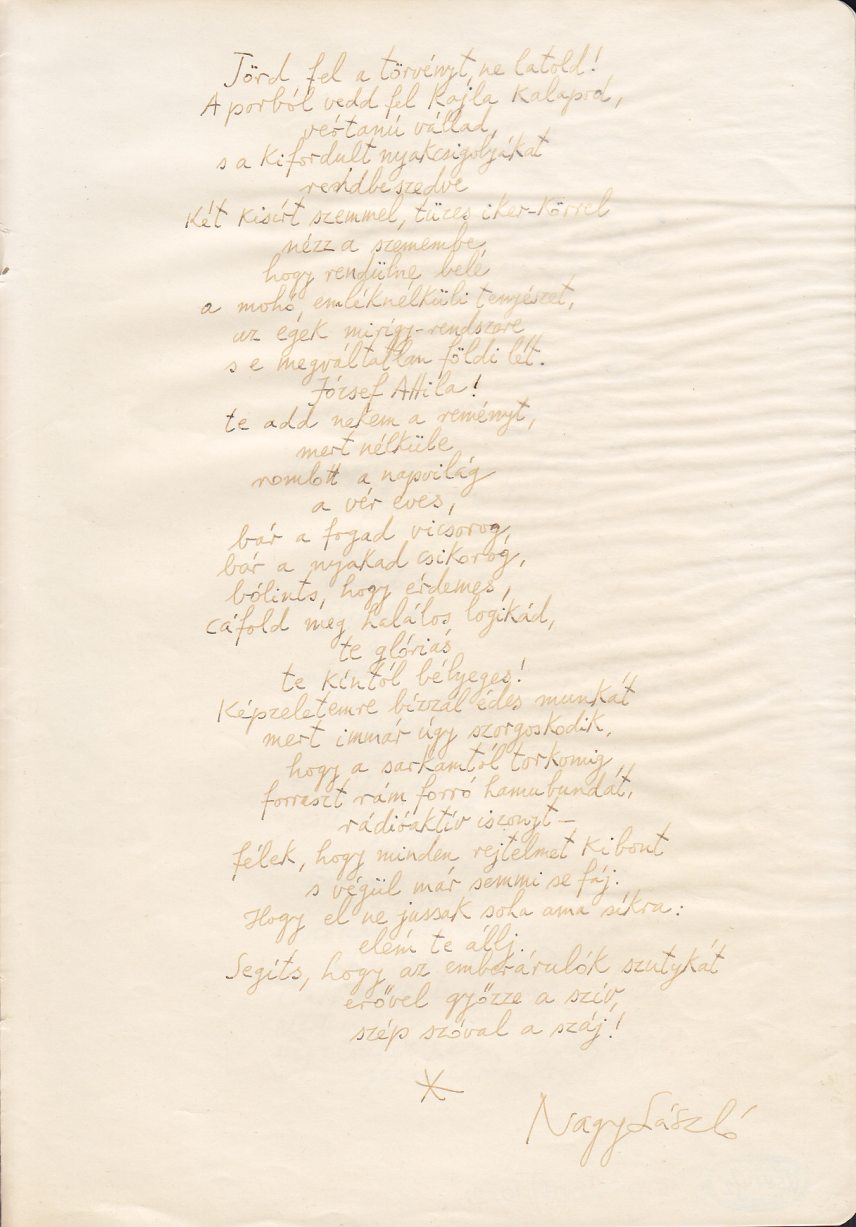 Törd fel a törvényt, ne latold!
A porból vedd fel kajla kalapod,
vértanú vállad,
s a kifordult nyakcsigolyákat
rendbeszedve
Két kisírt szemmel, tüzes iker-körrel
nézz a szemembe,
hogy rendülne belé
a mohó, emléknélküli tenyészet,
az egek mirigy-rendszere
s e megváltatlan földi lét.
József Attila!
te add nekem a reményt,
mert nélküle
romlott a napvilág
a vér eves,
bár a fogad vicsorog,
bár a nyakad csikorog,
bólints, hogy érdemes,
cáfold meg halálos logikád,
te glóriás
te kíntól bélyeges!
Képzeletemre bízzál édes munkát
mert immár úgy szorgoskodik,
hogy a sarkamtól torkomig
forraszt rám forró hamubundát,
rádióaktív iszonyt –
félek, hogy minden rejtelmet kibont
s végül már semmi se fáj.
Hogy el ne jussak soha ama síkra:
elém te állj.
Segíts, hogy az emberárulók szutykát
erővel győzze a szív,
szép szóval a száj!
*
Nagy László